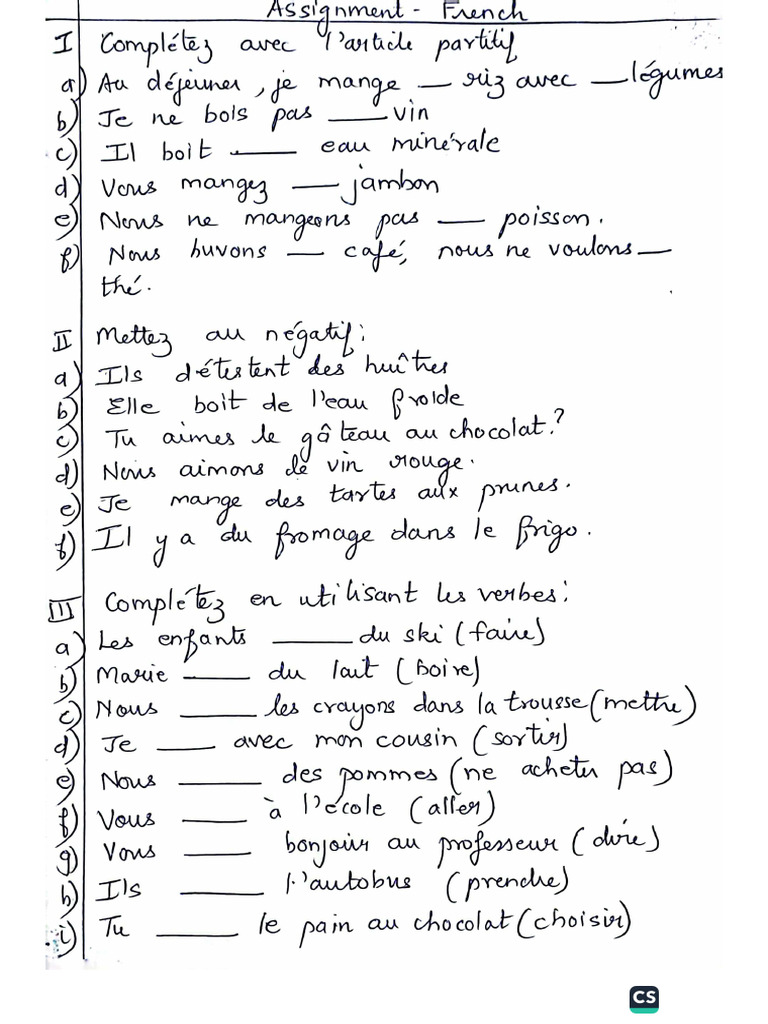 Assignment - French
I Complétez avec l'article partitif
a) Au déjeuner, je mange __ riz avec __ légumes
b) Je ne bois pas ____ vin
c) Il boit ____ eau minérale
d) Vous mangez ___ jambon
e) Nous ne mangeons pas ___ poisson.
f) Nous buvons __ café, nous ne voulons __
thé.
II Mettez au négatif:
a) Ils détestent des huîtres
b) Elle boit de l'eau froide
c) Tu aimes le gâteau au chocolat?
d) Nous aimons de vin rouge.
e) Je mange des tartes aux prunes.
f) Il y a du fromage dans le frigo.
III Complétez en utilisant les verbes:
a) Les enfants _____ du ski (faire)
b) Marie ____ du lait (Boire)
c) Nous _____ les crayons dans la trousse (mettre)
d) Je ____ avec mon cousin (sortir)
e) Nous _____ des pommes (ne acheter pas)
f) Vous ____ à l'école (aller)
g) Vous ____ bonjour au professeur (dire)
h) Ils _____ l'autobus (prendre)
i) Tu _____ le pain au chocolat (choisir)
CS